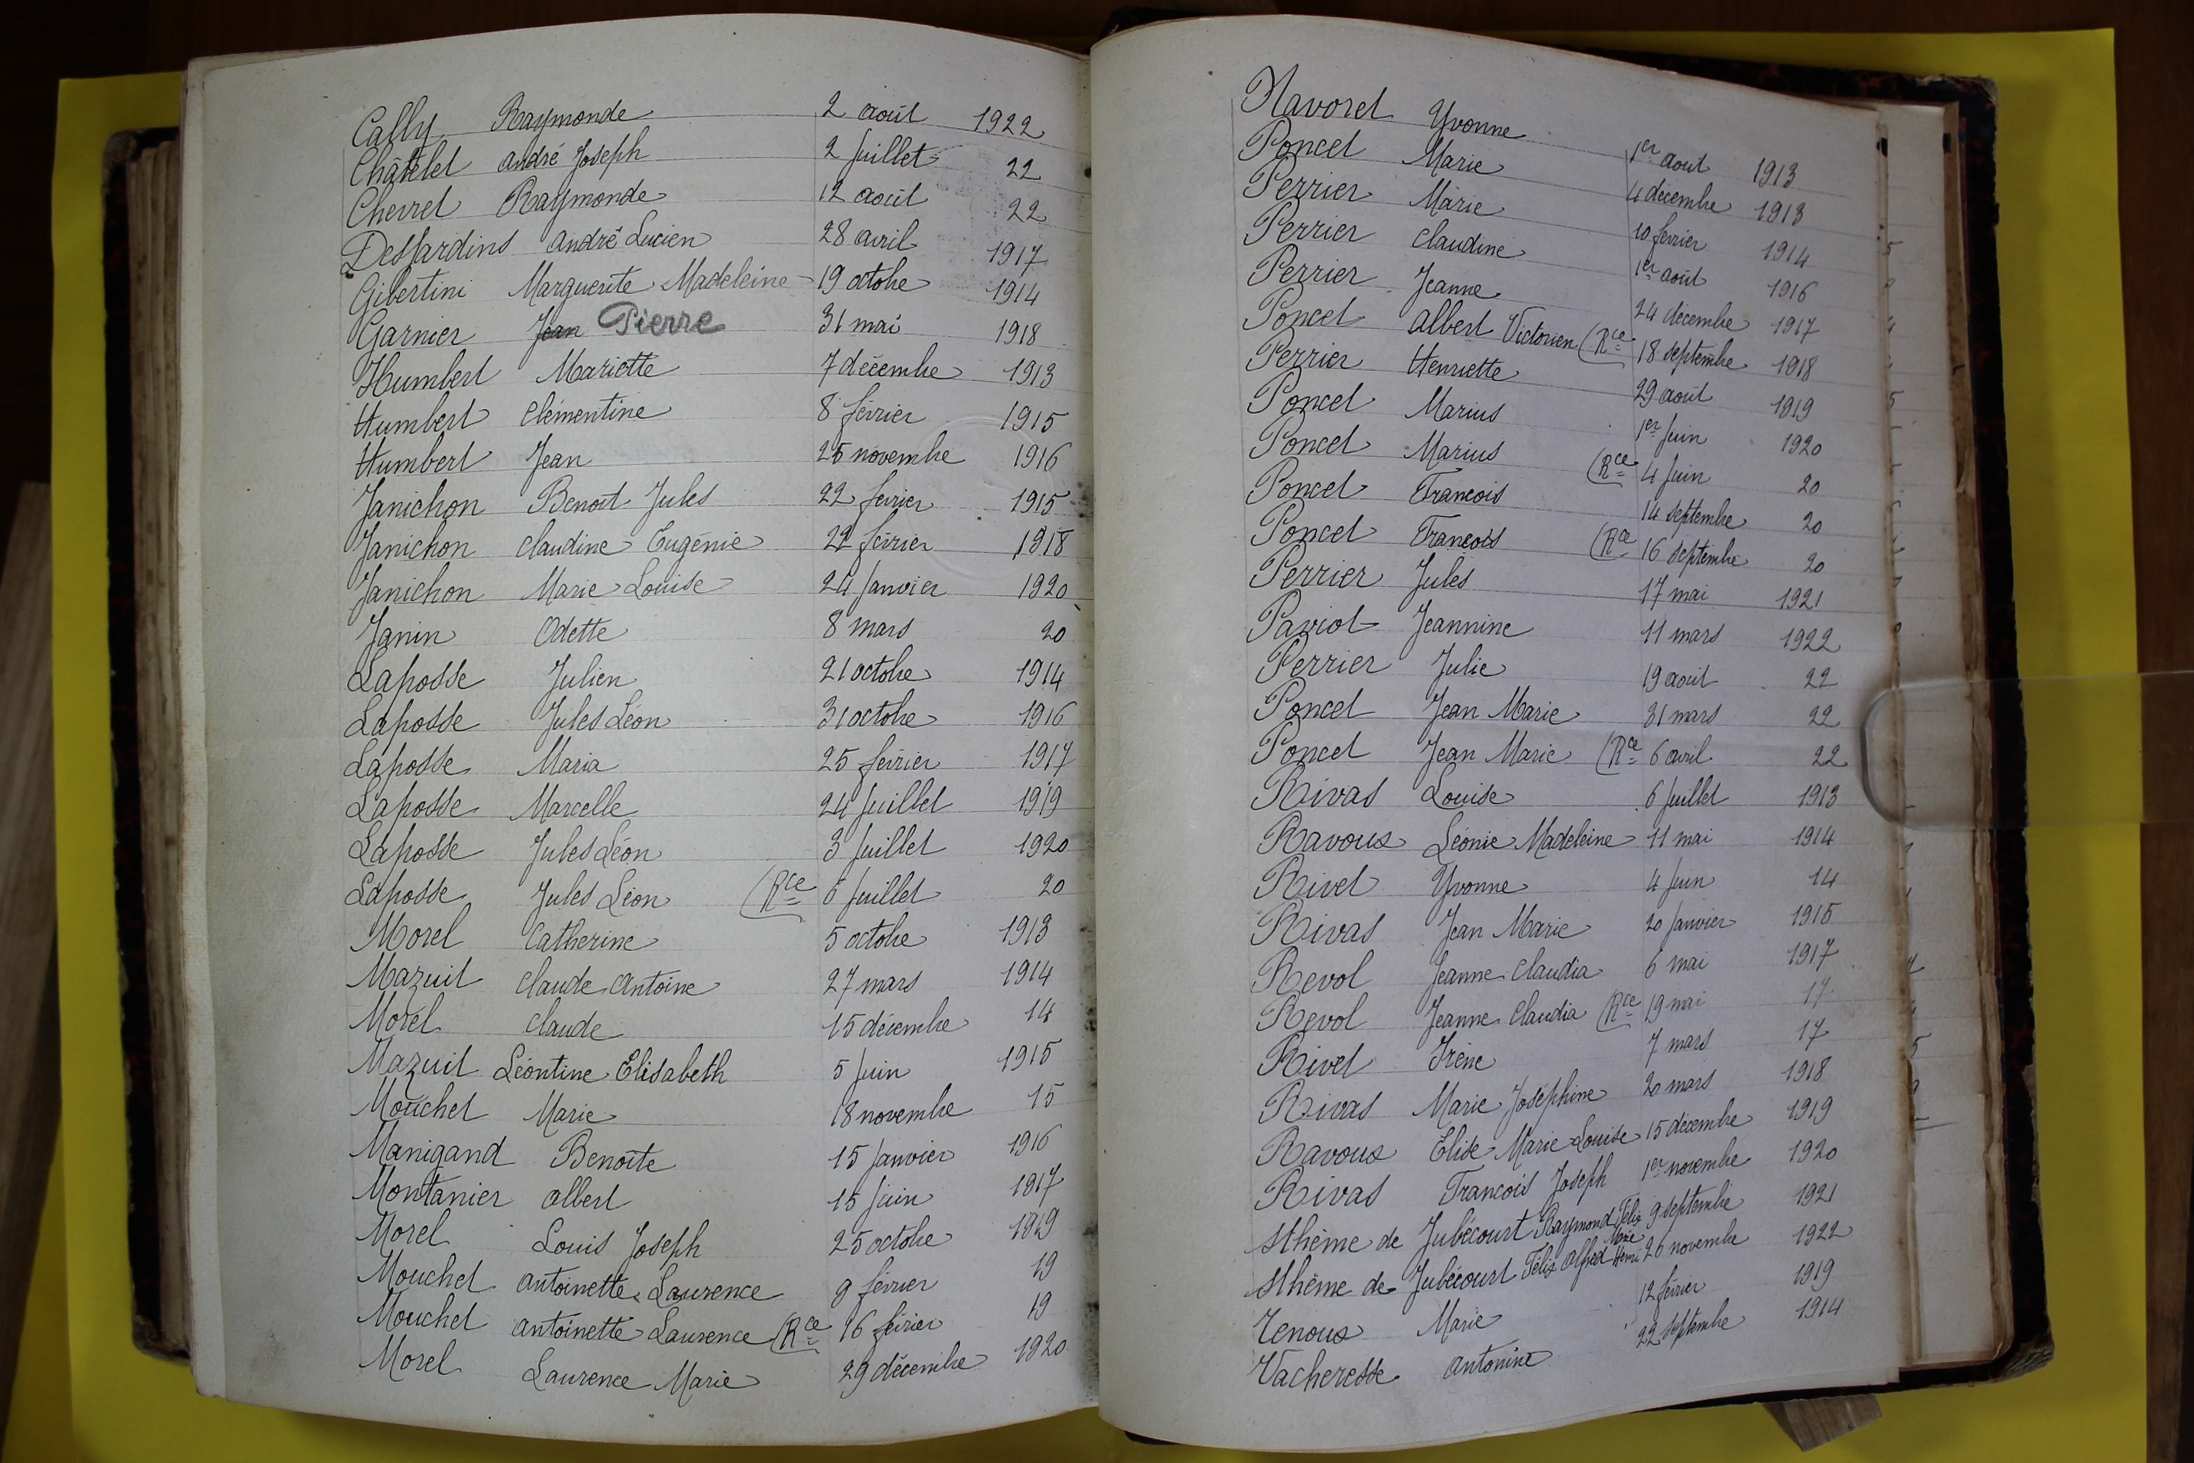 Cally Raymonde 2 août 1922
Châtelet André Joseph 2 juillet 22
Chevret Raymonde 12 août 22
Desjardins André Lucien 28 avril 1917
Gibertini Marguerite Madeleine 19 octobre 1914
Garnier Jean Pierre 31 mai 1918
Humbert Mariette 7 décembre 1913
Humbert Clémentine 8 février 1915
Humbert Jean 25 novembre 1916
Janichon Benoît Jules 22 février 1915
Janichon Claudine Eugénie 22 février 1918
Janichon Marie Louise 24 janvier 1920
Janin Odette 8 mars 20
Laposse Julien 21 octobre 1914
Laposse Jules Léon 31 octobre 1916
Laposse Maria 25 février 1917
Laposse Marcelle 24 juillet 1919
Laposse Jules Léon 3 juillet 1920
Laposse Jules Léon (Rce 6 juillet 20
Morel Catherine 5 octobre 1913
Mazuit Claude Antoine 27 mars 1914
Morel Claude 15 décembre 14
Mazuit Léontine Elisabeth 5 juin 1915
Mouchet Marie 18 novembre 15
Manigand Benoîte 15 janvier 1916
Montanier Albert 15 juin 1917
Morel Louis Joseph 25 octobre 1919
Mouchet Antoinette Laurence 9 février 19
Mouchet Antoinette Laurence (Rce 16 février 19
Morel Laurence Marie 29 décembre 1920
Navoret Yvonne 1er août 1913
Poncet Marie 4 décembre 1913
Perrier Marie 10 février 1914
Perrier Claudine 1er août 1916
Perrier Jeanne 24 décembre 1917
Poncet Albert Victorien (Rce 18 septembre 1918
Perrier Henriette 29 août 1919
Poncet Marius 1er juin 1920
Poncet Marius (Rce 4 juin 20
Poncet François 14 septembre 20
Poncet François (Rce 16 septembre 20
Perrier Jules 17 mai 1921
Paviot Jeannine 11 mars 1922
Perrier Julie 19 août 22
Poncet Jean Marie 31 mars 22
Poncet Jean Marie (Rce 6 avril 22
Rivas Louise 6 juillet 1913
Ravoux Léonie Madeleine 11 mai 1914
Rivet Yvonne 4 juin 14
Rivas Jean Marie 20 janvier 1915
Revol Jeanne Claudia 6 mai 1917
Revol Jeanne Claudia (Rce 19 mai 17
Rivet Irène 7 mars 17
Rivas Marie Joséphine 20 mars 1918
Ravoux Elise Marie Louise 15 décembre 1919
Rivas François Joseph 1er novembre 1920
Sthème de Jubécourt Raymond Félix 9 septembre 1921
Sthème de Jubécourt Félix Alfred Marie Henri 20 novembre 1922
Tenoux Marie 12 février 1919
Vacheresse Antonine 22 septembre 1914